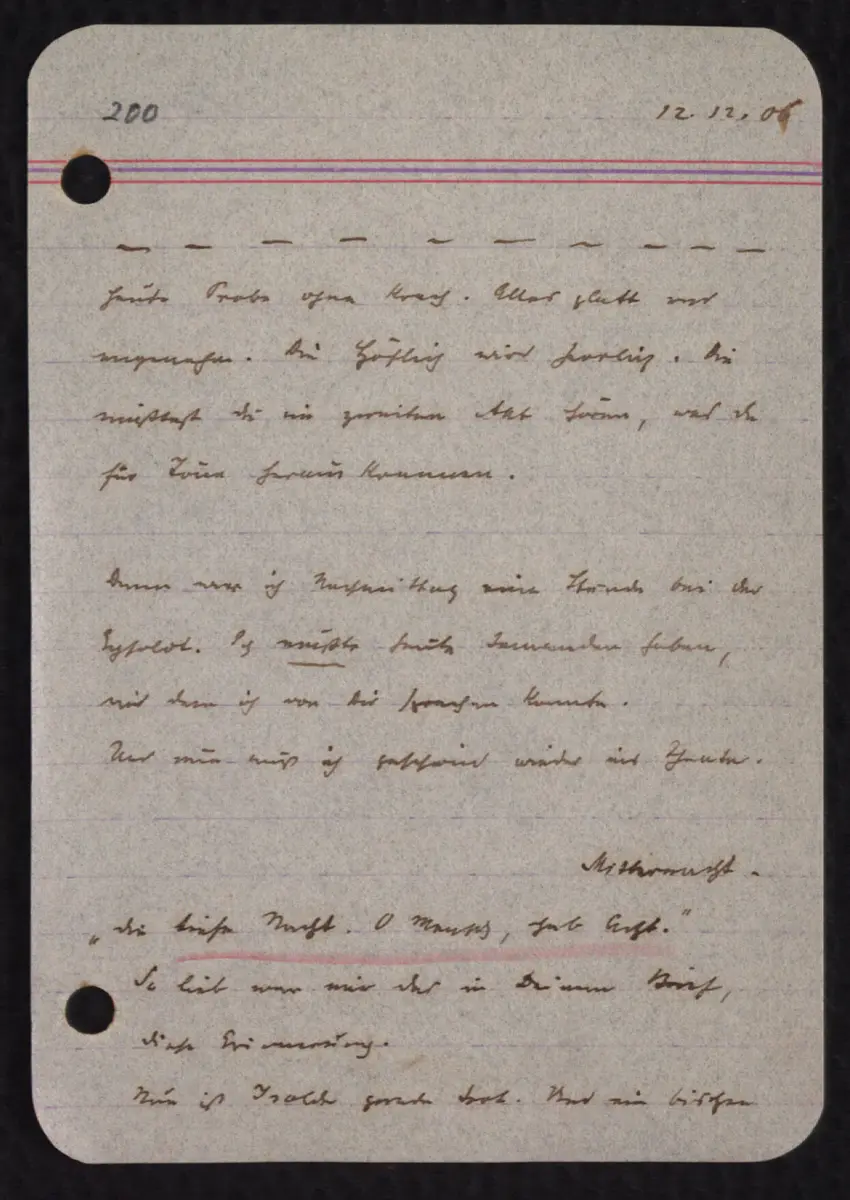 200
12. 12. 06
Heute Probe ohne Krach. Alles glatt und
angenehm. Die Höflich wird herrlich. Du
müßtest die im zweiten Akt hören, was da
für Töne heraus kommen.
Dann war ich Nachmittag eine Stunde bei der
Eysoldt. Ich mußte heute Jemanden haben,
mit dem ich von Dir sprechen konnte.
Und nun muß ich geschwind wieder ins Theater.
Mitternacht.
„die tiefe Nacht. O Mensch, hab Acht."
So lieb war mir das in Deinem Brief,
diese Erinnerung.
Nun ist Isolde gerade tot. Und ein bischen